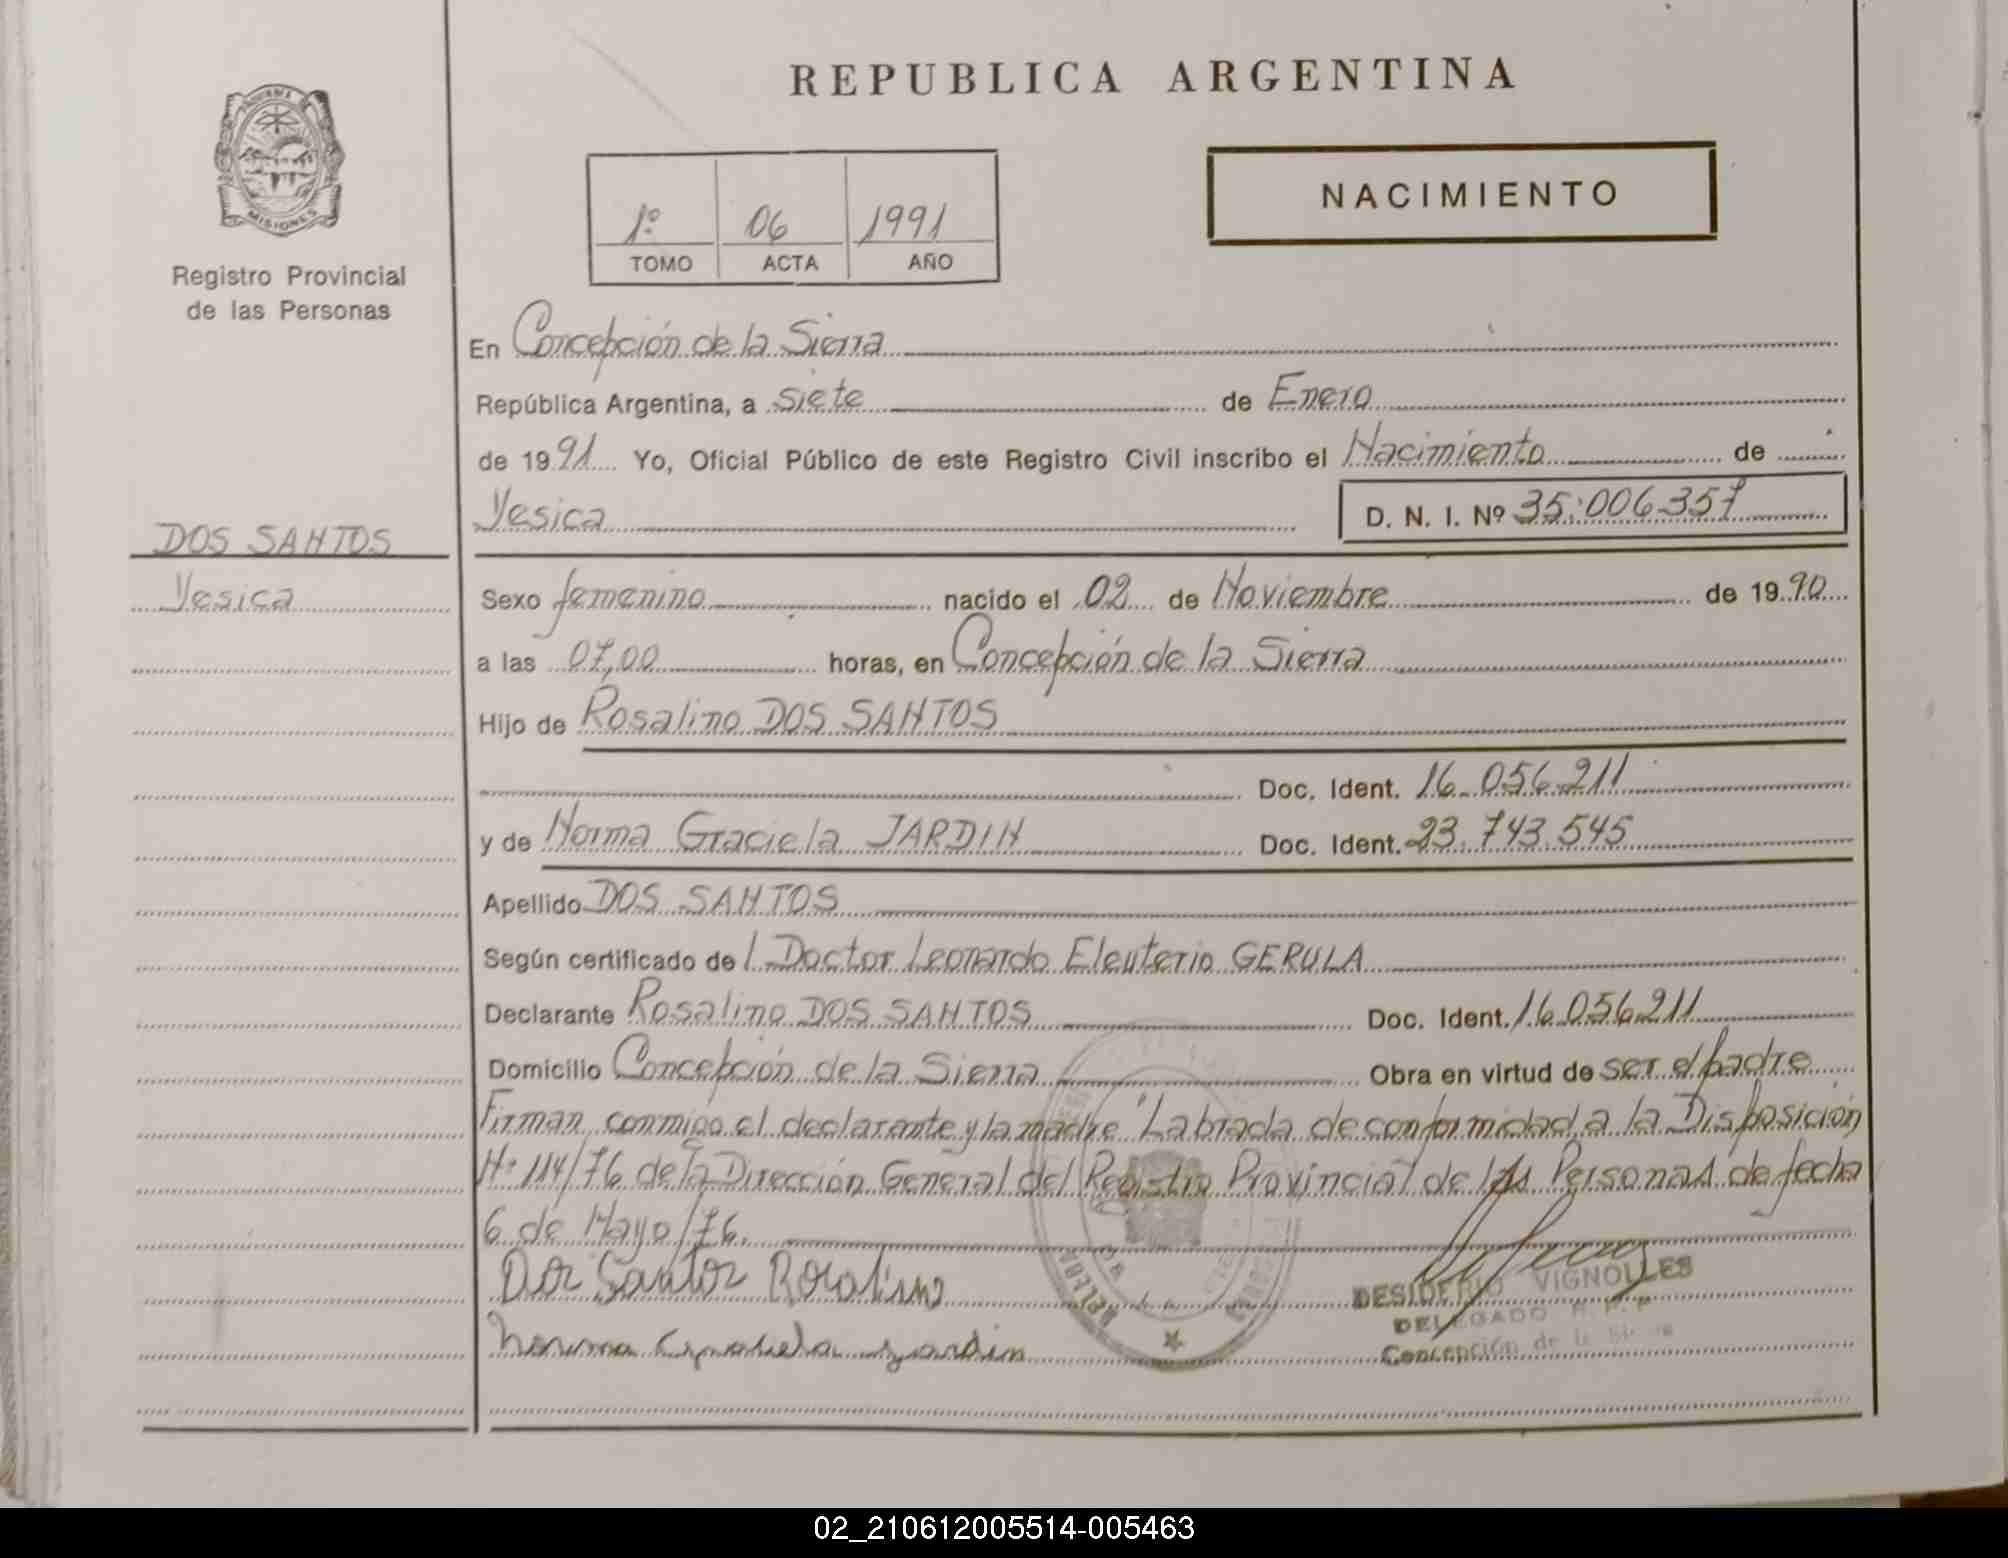 REPUBLICA ARGENTINA
PROVINCIA DE
MISIONES
Registro Provincial
de las Personas
1º 06 1991
TOMO ACTA AÑO
NACIMIENTO
En Concepción de la Sierra
República Argentina, a siete de Enero
de 1991 Yo, Oficial Público de este Registro Civil inscribo el Nacimiento de
Yesica D. N. I. Nº 35.006.357
DOS SANTOS
Yesica
Sexo femenino nacido el 02 de Noviembre de 1990
a las 07,00 horas, en Concepción de la Sierra
Hijo de Rosalino DOS SANTOS
Doc. Ident. 16.056.211
y de Norma Graciela JARDIN Doc. Ident. 23.743.545
Apellido DOS SANTOS
Según certificado de l Doctor Leonardo Eleuterio GERULA
Declarante Rosalino DOS SANTOS Doc. Ident. 16.056.211
Domicilio Concepción de la Sierra Obra en virtud de ser el padre
Firman conmigo el declarante y la madre "Labrada de conformidad a la Disposición
Nº 114/76 de la Dirección General del Registro Provincial de las Personas de fecha
6 de Mayo/76.
Dos Santos Rosalino
Norma Graciela Jardin
DESIDERIO VIGNOLLES
DELEGADO R. P. P.
Concepción de la Sierra
02_210612005514-005463